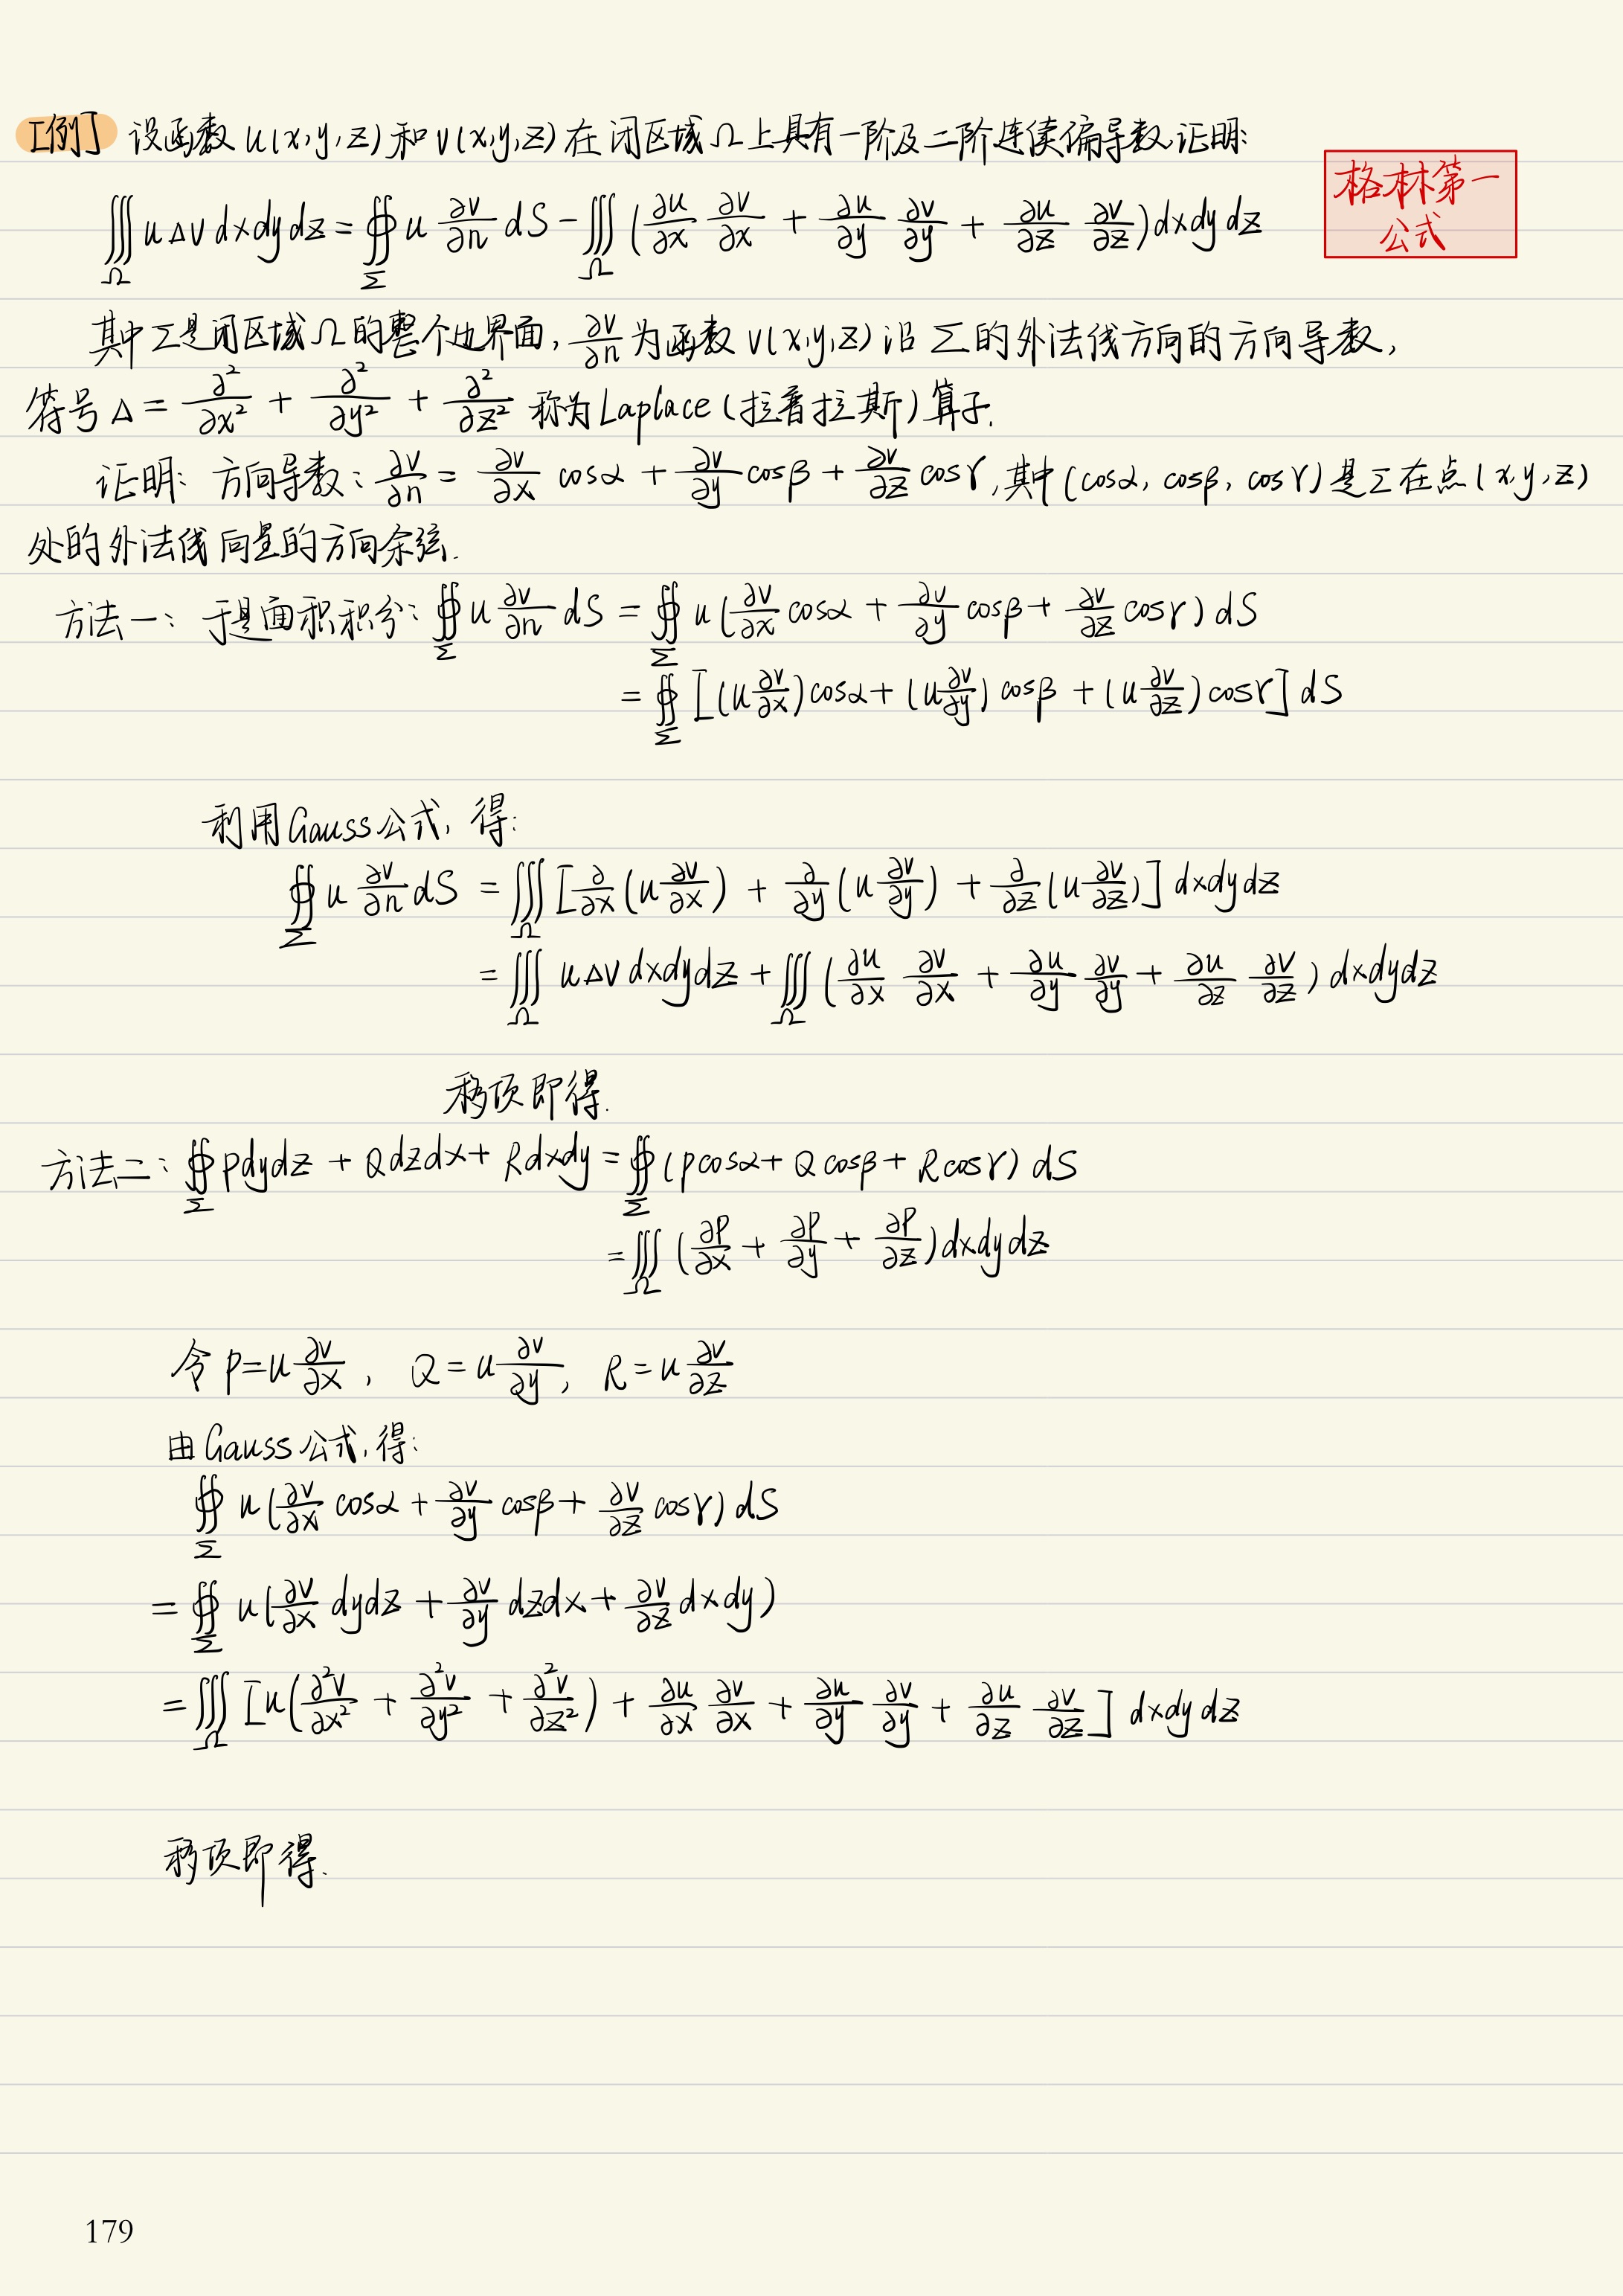 [例] 设函数 u(x,y,z) 和 v(x,y,z) 在闭区域 Ω 上具有一阶及二阶连续偏导数,证明:
格林第一
公式
∭_Ω uΔv dxdydz = ∯_Σ u ∂v/∂n dS − ∭_Ω (∂u/∂x ∂v/∂x + ∂u/∂y ∂v/∂y + ∂u/∂z ∂v/∂z) dxdydz
其中 Σ 是闭区域 Ω 的整个边界面, ∂v/∂n 为函数 v(x,y,z) 沿 Σ 的外法线方向的方向导数,
符号 Δ = ∂²/∂x² + ∂²/∂y² + ∂²/∂z² 称为 Laplace (拉普拉斯) 算子.
证明: 方向导数: ∂v/∂n = ∂v/∂x cosα + ∂v/∂y cosβ + ∂v/∂z cosγ, 其中 (cosα, cosβ, cosγ) 是 Σ 在点 (x,y,z)
处的外法线向量的方向余弦.
方法一: 于是面积积分: ∯_Σ u ∂v/∂n dS = ∯_Σ u (∂v/∂x cosα + ∂v/∂y cosβ + ∂v/∂z cosγ) dS
= ∯_Σ [(u ∂v/∂x) cosα + (u ∂v/∂y) cosβ + (u ∂v/∂z) cosγ] dS
利用 Gauss 公式, 得:
∯_Σ u ∂v/∂n dS = ∭_Ω [∂/∂x (u ∂v/∂x) + ∂/∂y (u ∂v/∂y) + ∂/∂z (u ∂v/∂z)] dxdydz
= ∭_Ω uΔv dxdydz + ∭_Ω (∂u/∂x ∂v/∂x + ∂u/∂y ∂v/∂y + ∂u/∂z ∂v/∂z) dxdydz
移项即得.
方法二: ∯_Σ Pdydz + Qdzdx + Rdxdy = ∯_Σ (Pcosα + Qcosβ + Rcosγ) dS
= ∭_Ω (∂P/∂x + ∂P/∂y + ∂P/∂z) dxdydz
令 P = u ∂v/∂x, Q = u ∂v/∂y, R = u ∂v/∂z
由 Gauss 公式, 得:
∯_Σ u (∂v/∂x cosα + ∂v/∂y cosβ + ∂v/∂z cosγ) dS
= ∯_Σ u (∂v/∂x dydz + ∂v/∂y dzdx + ∂v/∂z dxdy)
= ∭_Ω [u (∂²v/∂x² + ∂²v/∂y² + ∂²v/∂z²) + ∂u/∂x ∂v/∂x + ∂u/∂y ∂v/∂y + ∂u/∂z ∂v/∂z] dxdydz
移项即得.
179